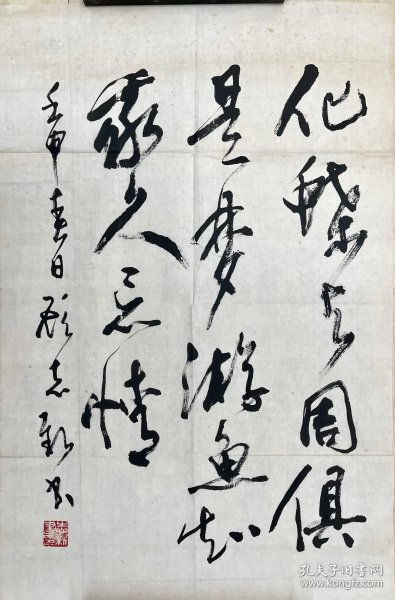 化蝶与周俱
是梦游魚知
我久忘情
壬申春日 顾志新书
孔夫子旧书网
www.kongfz.com